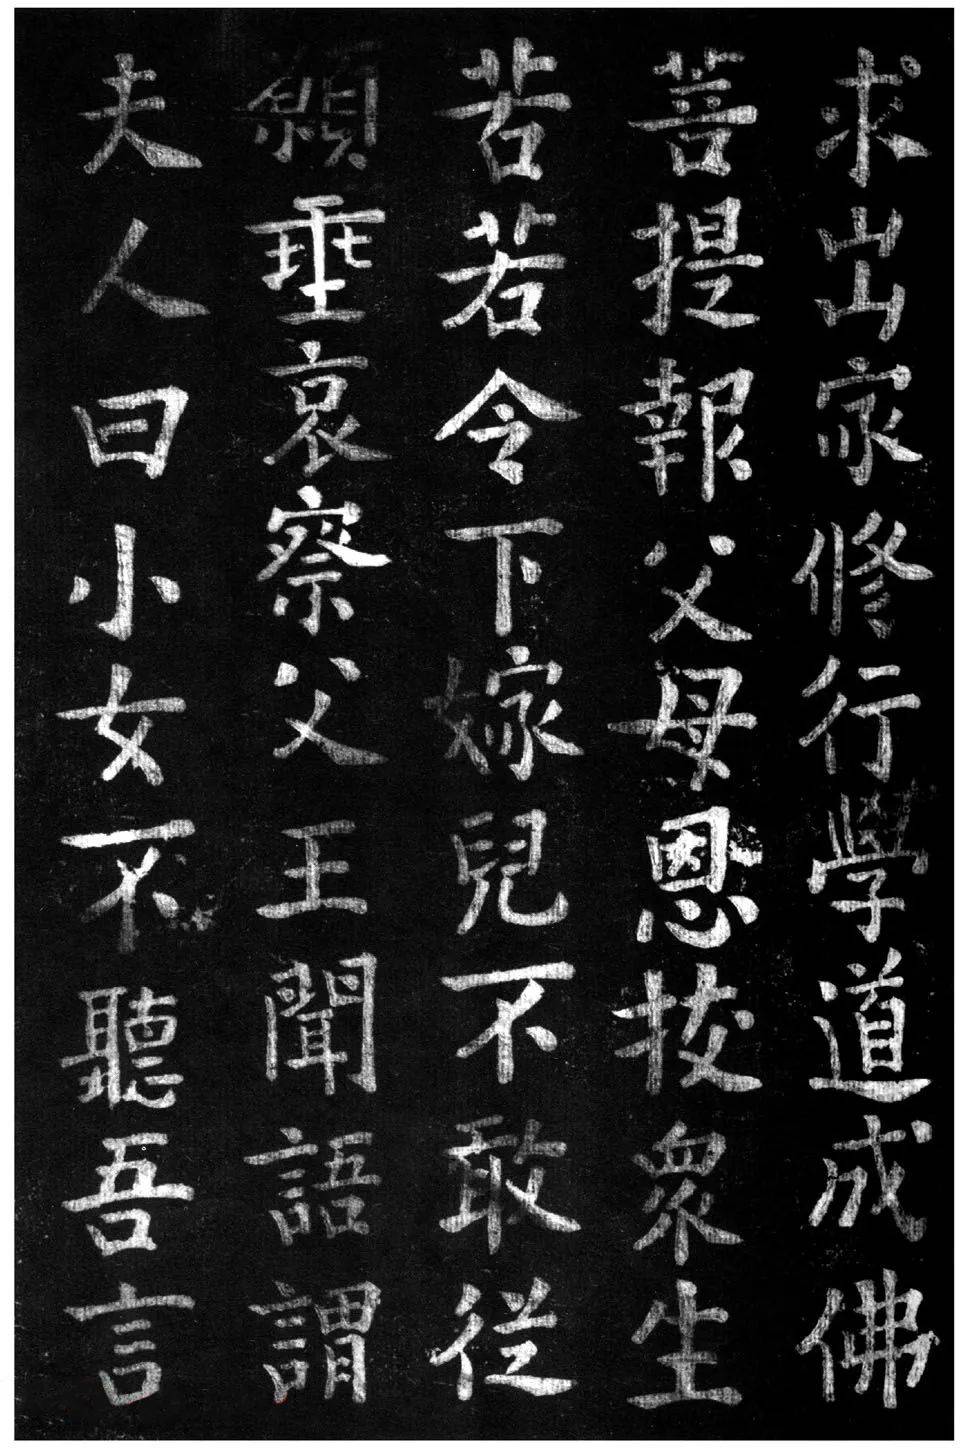 求出家修行學道成佛
菩提報父母恩拔衆生
苦若令下嫁兒不敢從
願垂哀察父王聞語謂
夫人曰小女不聽吾言